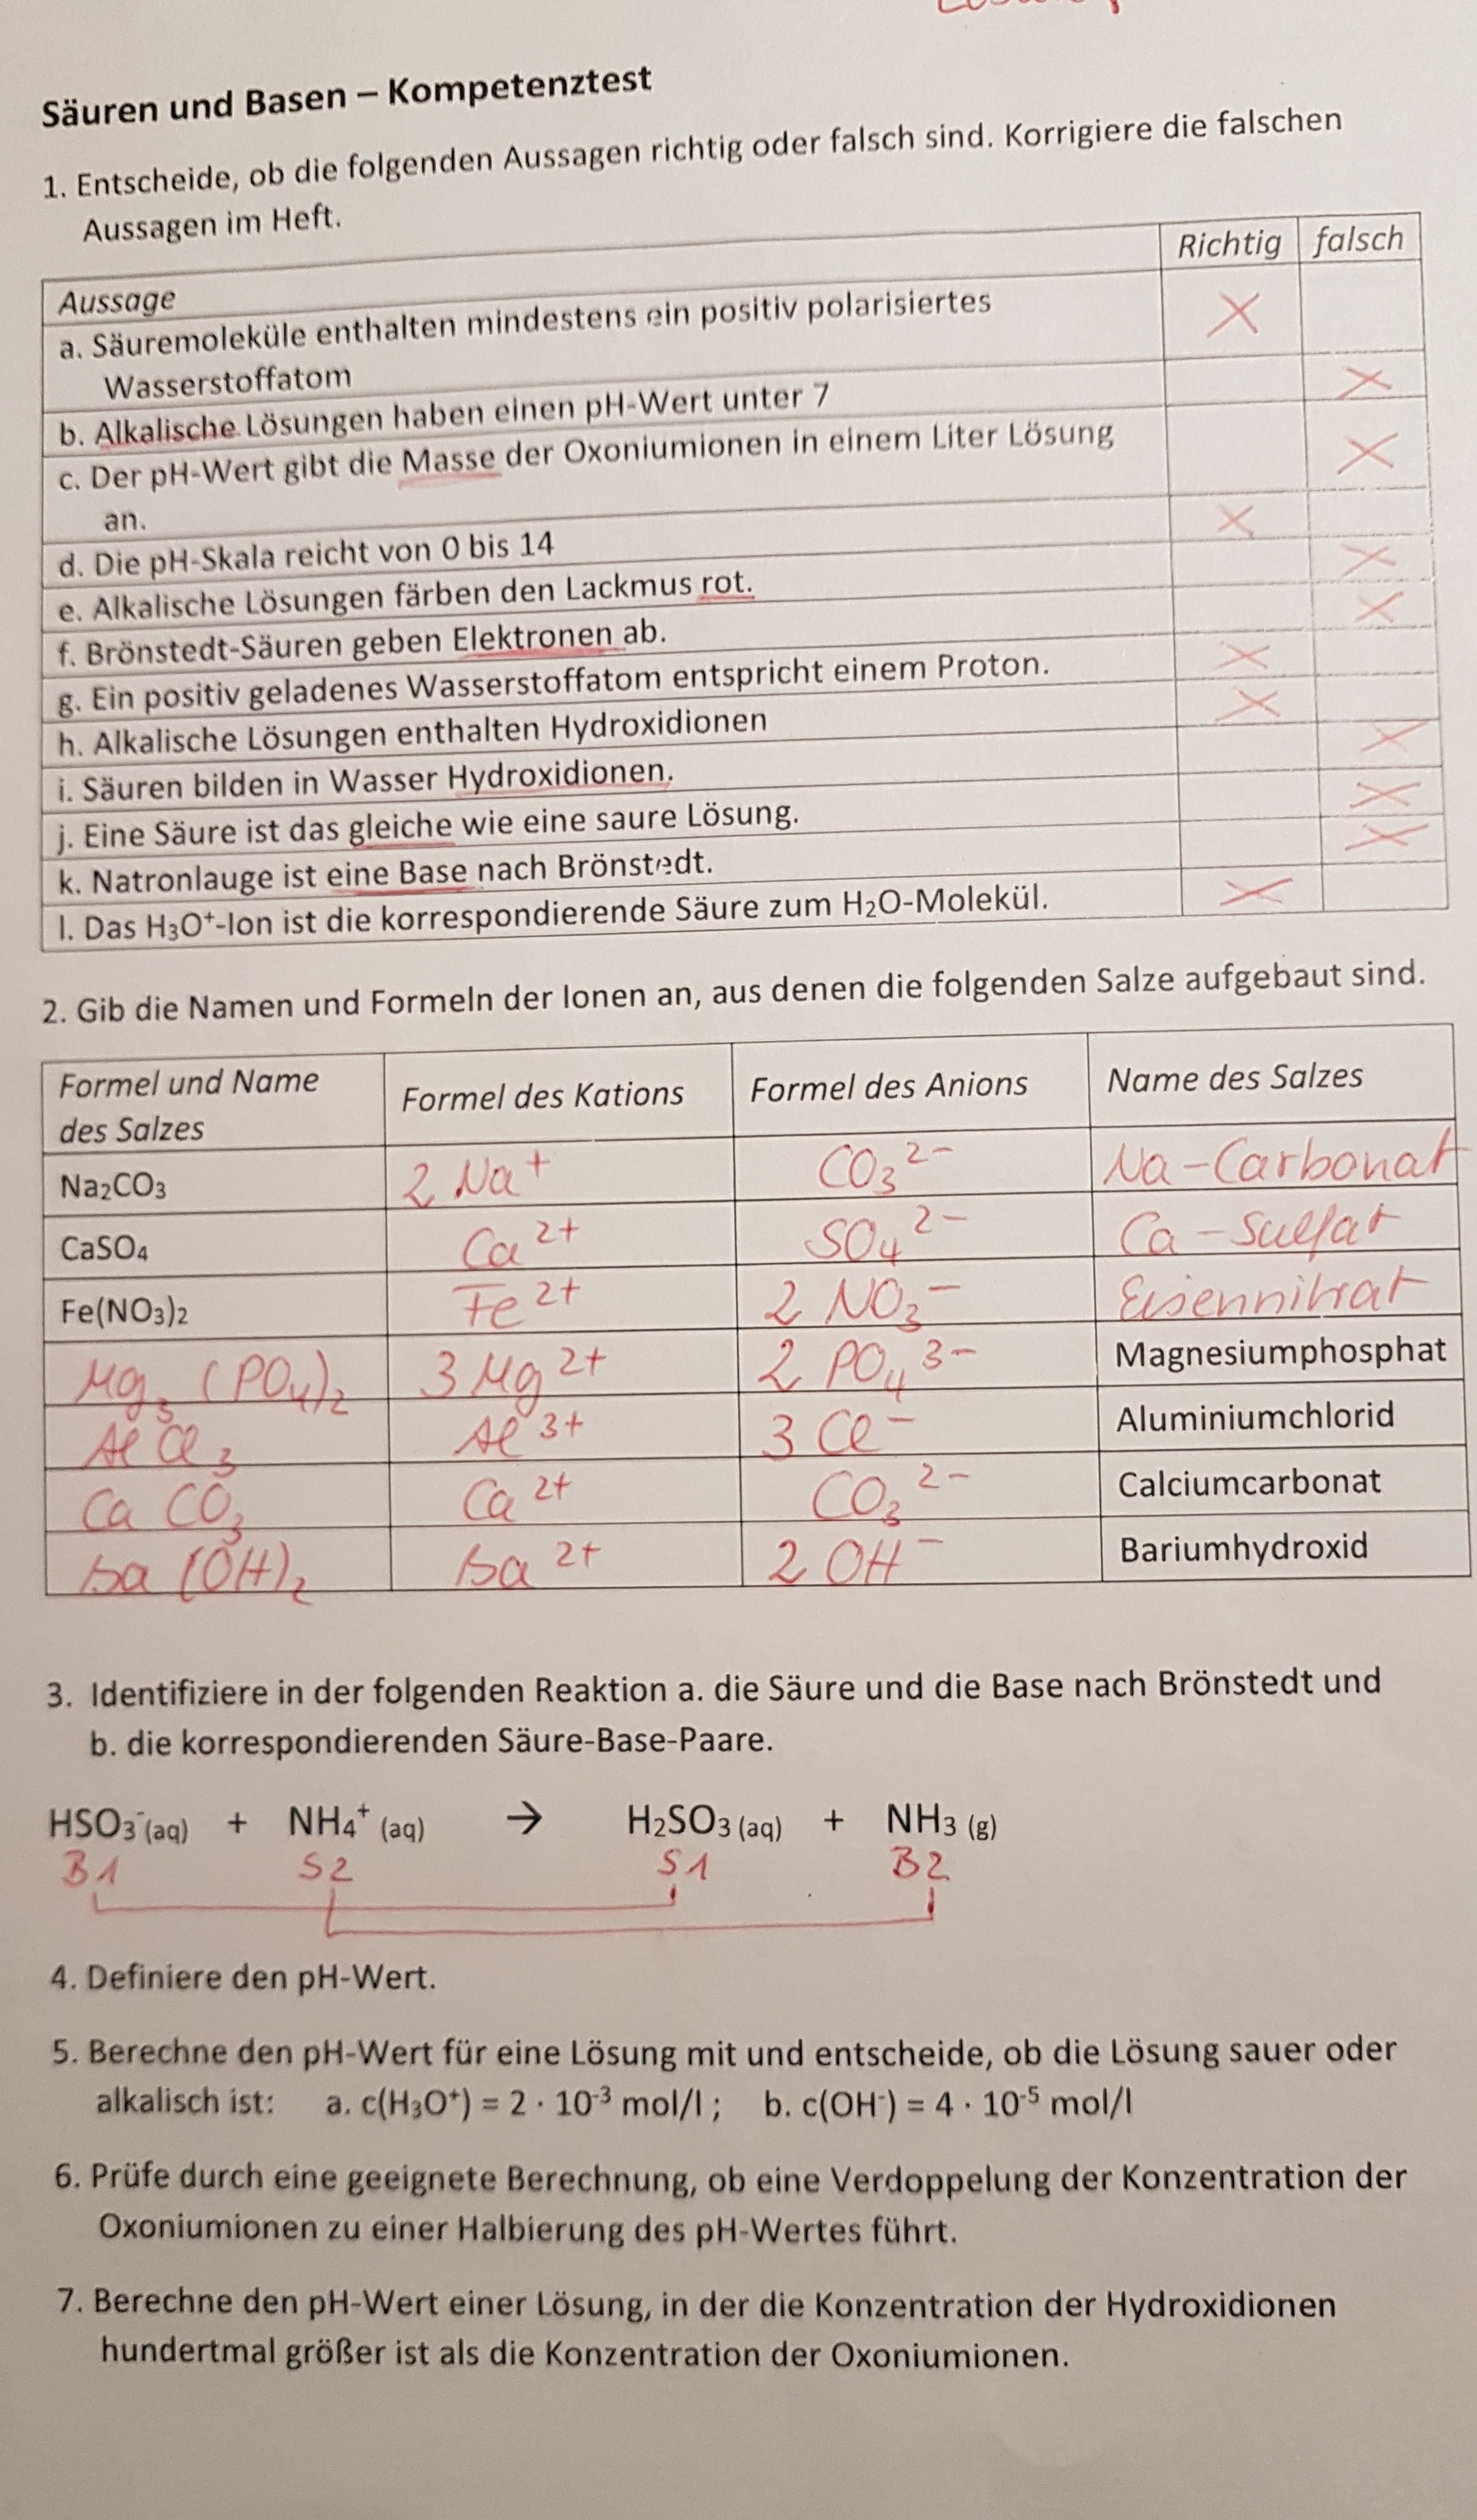 Säuren und Basen – Kompetenztest
1. Entscheide, ob die folgenden Aussagen richtig oder falsch sind. Korrigiere die falschen
Aussagen im Heft.
Aussage Richtig falsch
a. Säuremoleküle enthalten mindestens ein positiv polarisiertes X
Wasserstoffatom
b. Alkalische Lösungen haben einen pH-Wert unter 7 X
c. Der pH-Wert gibt die Masse der Oxoniumionen in einem Liter Lösung X
an.
d. Die pH-Skala reicht von 0 bis 14 X
e. Alkalische Lösungen färben den Lackmus rot. X
f. Brönstedt-Säuren geben Elektronen ab. X
g. Ein positiv geladenes Wasserstoffatom entspricht einem Proton. X
h. Alkalische Lösungen enthalten Hydroxidionen X
i. Säuren bilden in Wasser Hydroxidionen. X
j. Eine Säure ist das gleiche wie eine saure Lösung. X
k. Natronlauge ist eine Base nach Brönstedt. X
l. Das H₃O⁺-Ion ist die korrespondierende Säure zum H₂O-Molekül. X
2. Gib die Namen und Formeln der Ionen an, aus denen die folgenden Salze aufgebaut sind.
Formel und Name des Salzes Formel des Kations Formel des Anions Name des Salzes
Na₂CO₃ 2 Na⁺ CO₃²⁻ Na-Carbonat
CaSO₄ Ca²⁺ SO₄²⁻ Ca-Sulfat
Fe(NO₃)₂ Fe²⁺ 2 NO₃⁻ Eisennitrat
Mg₃(PO₄)₂ 3 Mg²⁺ 2 PO₄³⁻ Magnesiumphosphat
AlCl₃ Al³⁺ 3 Cl⁻ Aluminiumchlorid
CaCO₃ Ca²⁺ CO₃²⁻ Calciumcarbonat
Ba(OH)₂ Ba²⁺ 2 OH⁻ Bariumhydroxid
3. Identifiziere in der folgenden Reaktion a. die Säure und die Base nach Brönstedt und
b. die korrespondierenden Säure-Base-Paare.
HSO₃⁻(aq) + NH₄⁺ (aq) → H₂SO₃ (aq) + NH₃ (g)
B1 S2 S1 B2
4. Definiere den pH-Wert.
5. Berechne den pH-Wert für eine Lösung mit und entscheide, ob die Lösung sauer oder
alkalisch ist: a. c(H₃O⁺) = 2 · 10⁻³ mol/l ; b. c(OH⁻) = 4 · 10⁻⁵ mol/l
6. Prüfe durch eine geeignete Berechnung, ob eine Verdoppelung der Konzentration der
Oxoniumionen zu einer Halbierung des pH-Wertes führt.
7. Berechne den pH-Wert einer Lösung, in der die Konzentration der Hydroxidionen
hundertmal größer ist als die Konzentration der Oxoniumionen.